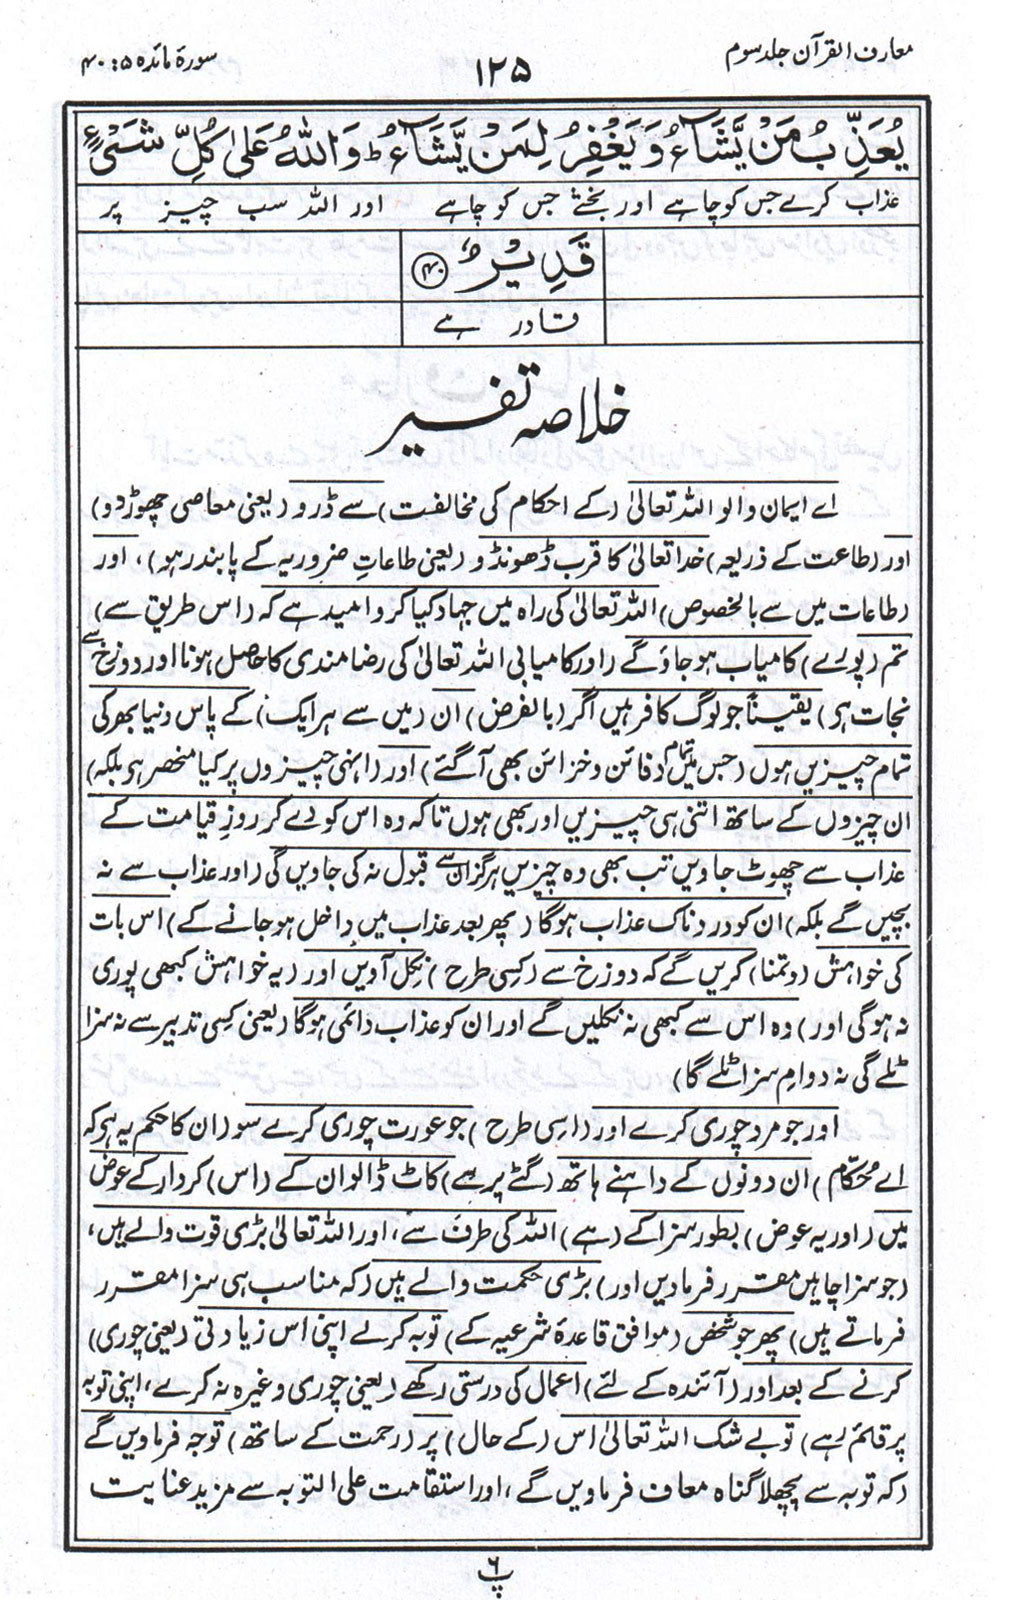 معارف القرآن جلد سوم
۱۲۵
سورۂ مائدہ ۵: ۴۰
يُعَذِّبُ مَنْ يَّشَآءُ وَ يَغْفِرُ لِمَنْ يَّشَآءُ ؕ وَاللّٰهُ عَلٰى كُلِّ شَىْءٍ
عذاب کرے جس کو چاہے اور بخشے جس کو چاہے اور اللہ سب چیز پر
قَدِيْرٌ ﴿۴۰﴾
قادر ہے
خلاصہ تفسیر
اے ایمان والو اللہ تعالیٰ (کے احکام کی مخالفت) سے ڈرو (یعنی معاصی چھوڑ دو)
اور (طاعت کے ذریعہ) خدا تعالیٰ کا قرب ڈھونڈو (یعنی طاعاتِ ضروریہ کے پابند رہو)، اور
(طاعات میں سے بالخصوص) اللہ تعالیٰ کی راہ میں جہاد کیا کرو امید ہے کہ (اس طریق سے)
تم (پورے) کامیاب ہو جاؤ گے (اور کامیابی اللہ تعالیٰ کی رضامندی کا حاصل ہونا اور دوزخ سے
نجات ہی) یقیناً جو لوگ کافر ہیں اگر (بالفرض) ان (میں سے ہر ایک) کے پاس دنیا بھر کی
تمام چیزیں ہوں (جس میں تمام دفائن و خزائن بھی آ گئے) اور (انہی چیزوں پر کیا منحصر ہی بلکہ)
ان چیزوں کے ساتھ اتنی ہی چیزیں اور بھی ہوں تاکہ وہ اس کو دے کر روزِ قیامت کے
عذاب سے چھوٹ جاویں تب بھی وہ چیزیں ہرگز ان سے قبول نہ کی جاویں گی (اور عذاب سے نہ
بچیں گے بلکہ) ان کو دردناک عذاب ہوگا (پھر بعد عذاب میں داخل ہو جانے کے) اس بات
کی خواہش (و تمنا) کریں گے کہ دوزخ سے (کسی طرح) نکل آویں اور (یہ خواہش کبھی پوری
نہ ہوگی اور) وہ اس سے کبھی نہ نکلیں گے اور ان کو عذاب دائمی ہوگا (یعنی کسی تدبیر سے نہ سزا
ٹلے گی نہ دوامِ سزا ٹلے گا)
اور جو مرد چوری کرے اور (اسی طرح) جو عورت چوری کرے سو (ان کا حکم یہ ہی کہ
اے حکّام) ان دونوں کے داہنے ہاتھ (گٹے پر سے) کاٹ ڈالو ان کے (اس) کردار کے عوض
میں (اور یہ عوض) بطور سزا کے (ہے) اللہ کی طرف سے، اور اللہ تعالیٰ بڑی قوت والے ہیں،
(جو سزا چاہیں مقرر فرماویں اور) بڑی حکمت والے ہیں (کہ مناسب ہی سزا مقرر
فرماتے ہیں) پھر جو شخص (موافق قاعدۂ شرعیہ کے) توبہ کرلے اپنی اس زیادتی (یعنی چوری)
کرنے کے بعد اور (آئندہ کے لئے) اعمال کی درستی رکھے (یعنی چوری وغیرہ نہ کرے، اپنی توبہ
پر قائم رہے) تو بے شک اللہ تعالیٰ اس (کے حال) پر (رحمت کے ساتھ) توجہ فرماویں گے
(کہ توبہ سے پچھلا گناہ معاف فرماویں گے، اور استقامت علی التوبہ سے مزید عنایت
پ ۶